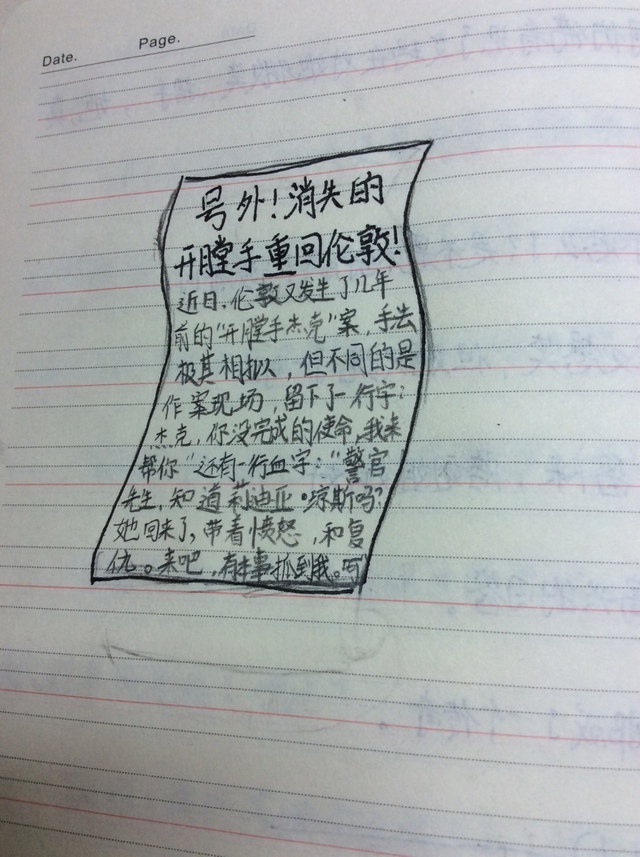 Date.
Page.
号外！消失的
开膛手重回伦敦！
近日，伦敦又发生了几年
前的“开膛手杰克”案，手法
极其相拟，但不同的是
作案现场，留下了一行字：
杰克，你没完成的使命，我来
帮你“还有一行血字：”警官
先生，知道莉迪亚·琼斯吗？
她回来了，带着愤怒，和复
仇。来吧，有本事抓到我。